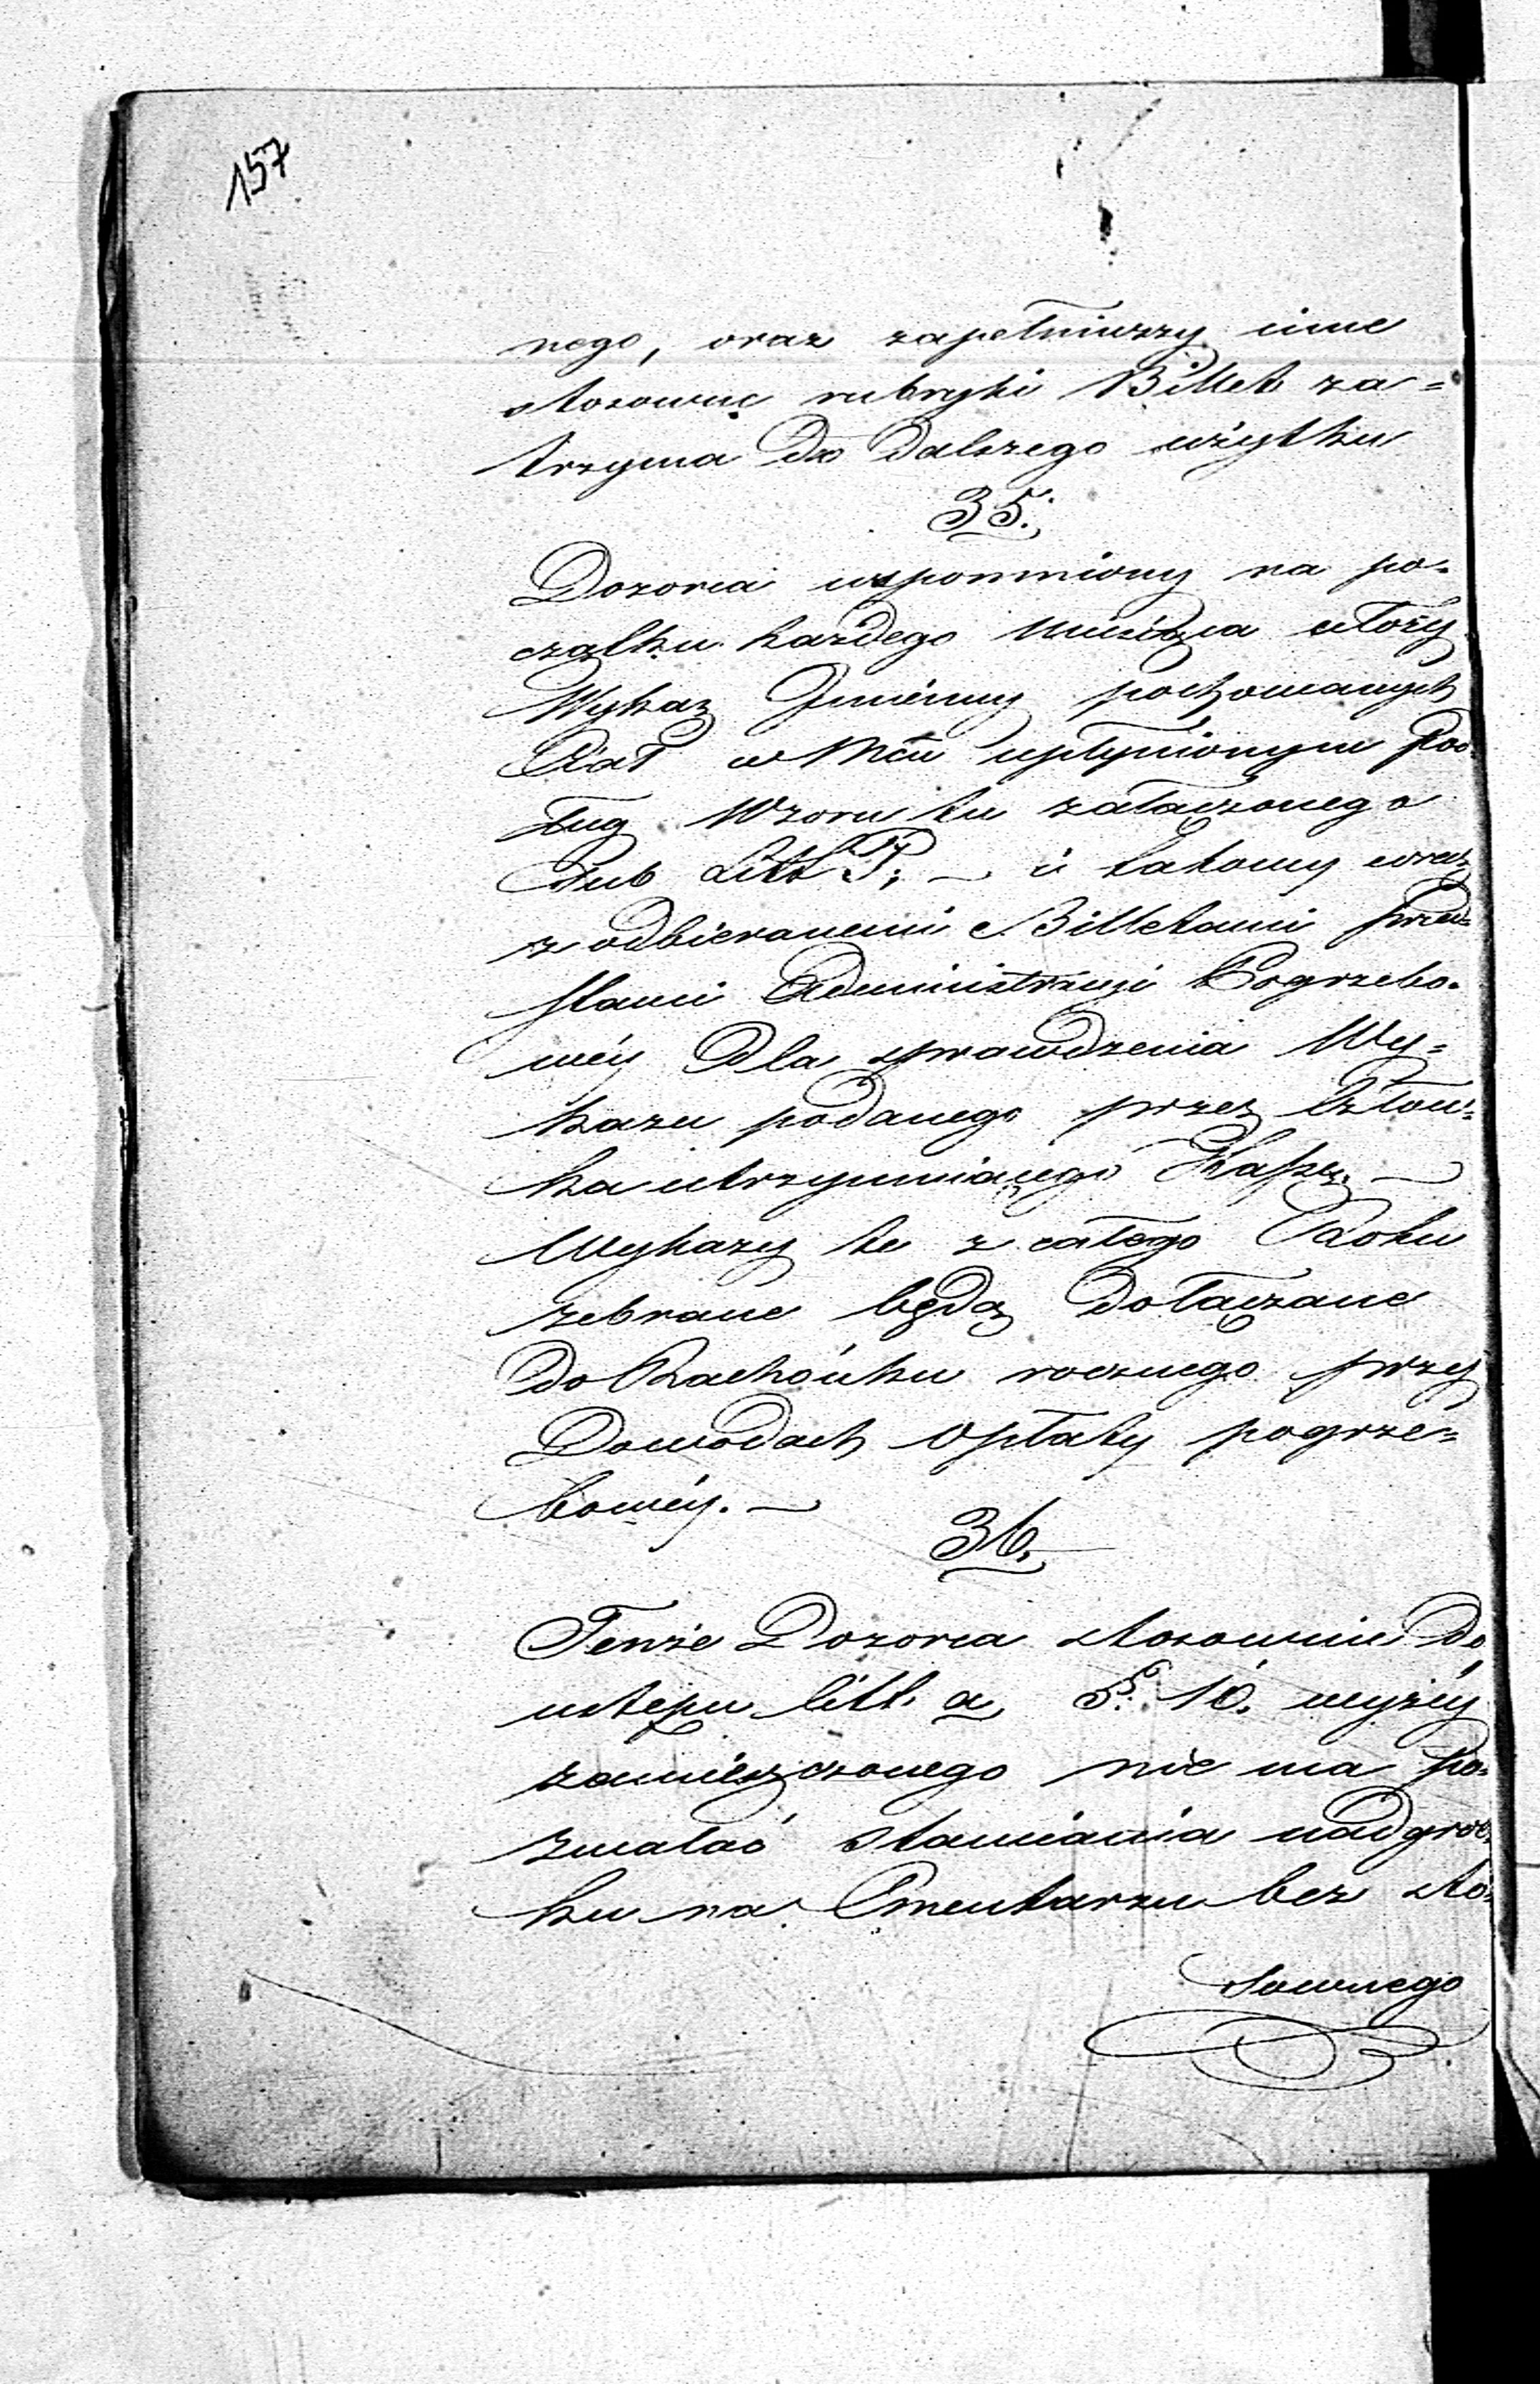 157
nego, oraz zapełniwszy inne
stosowne rubryki Billet za=
trzyma do dalszego użytku
35.
Dozorca wspomniony na po=
czątku każdego Miesiąca ułoży
Wykaz Jmienny pochowanych
Ciał w Mcu upłynionym Po=
dług Wzoru tu załączonego
Sub Litt P, — i takowy wraz
z odbieranemi Billetami przed=
stawi Administracyi Pogrzebo=
wéy dla sprawdzenia Wy=
kazu podanego przez Człon=
ka utrzymuiącego Kassę. —
Wykazy te z całego Roku
zebrane będą dołączane
do Rachunku rocznego przy
Dowodach Opłaty pogrze=
bowéy. —
36.
Tenże Dozorca stosownie do
ustępu litt. a, §. 10. wyżéy
zamieszczonego nie ma po=
zwalać stawiania nadgrob=
ku na Cmentarzu bez sto=
sownego